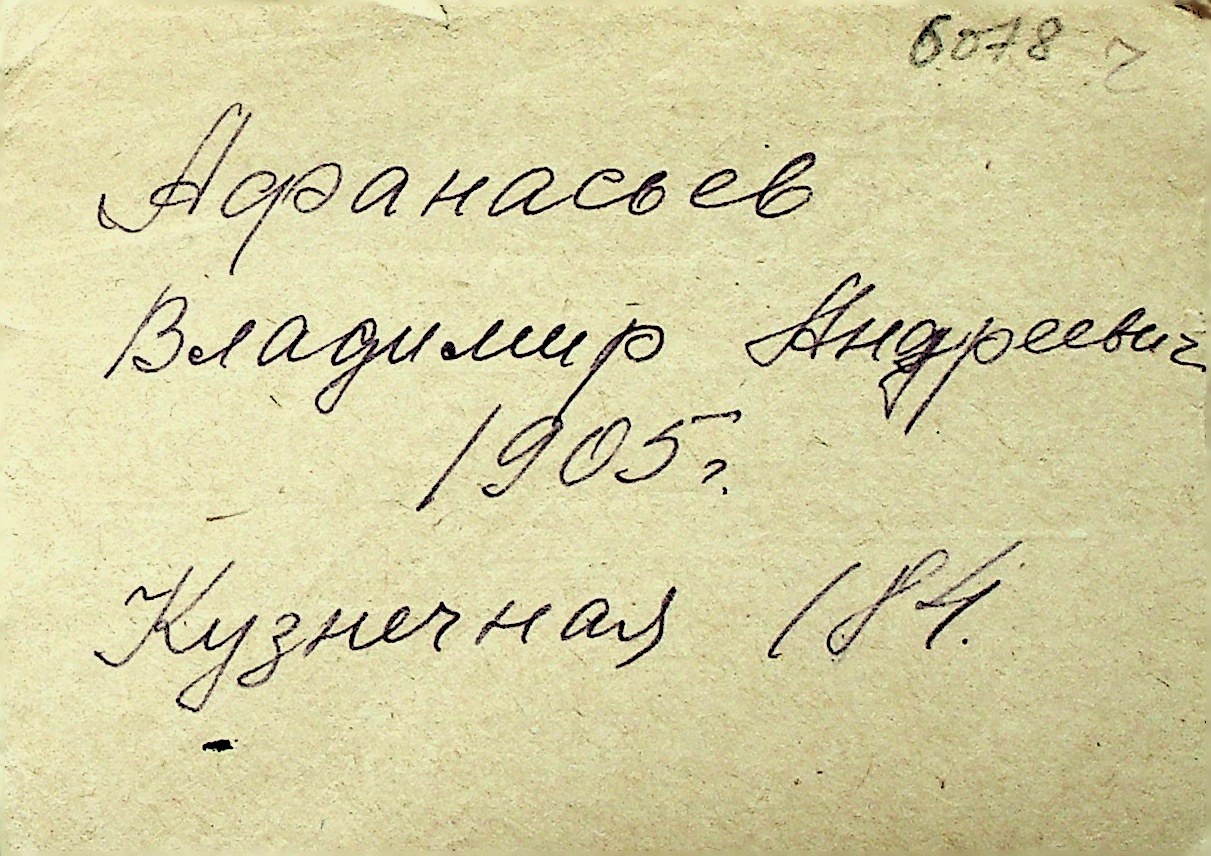 6078
Афанасьев
Владимир Андреевич
1905г.
Кузнечная 184.